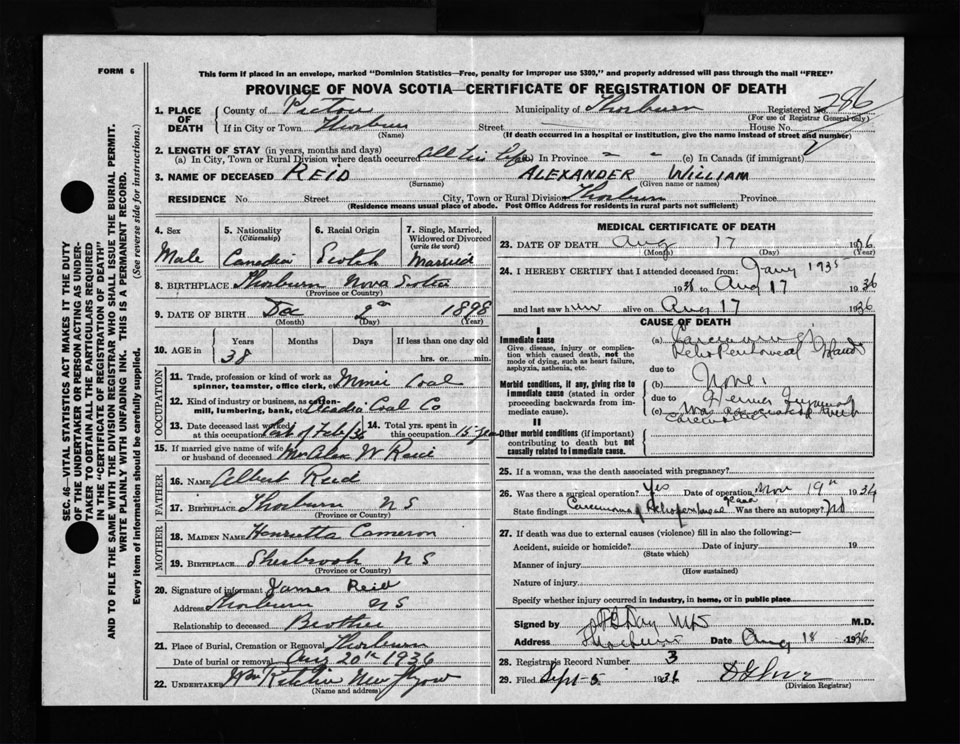 FORM 6
This form if placed in an envelope, marked "Dominion Statistics—Free, penalty for improper use $300," and properly addressed will pass through the mail "FREE"
PROVINCE OF NOVA SCOTIA—CERTIFICATE OF REGISTRATION OF DEATH
1. PLACE OF DEATH County of Pictou Municipality of Thorburn Registered No. 286
(For use of Registrar General only)
If in City or Town Thorburn Street House No.
(Name) (If death occurred in a hospital or institution, give the name instead of street and number)
2. LENGTH OF STAY (in years, months and days)
(a) In City, Town or Rural Division where death occurred All his life (b) In Province " " (c) In Canada (if immigrant)
3. NAME OF DECEASED REID ALEXANDER WILLIAM
(Surname) (Given name or names)
RESIDENCE No. Street City, Town or Rural Division Thorburn Province
(Residence means usual place of abode. Post Office Address for residents in rural parts not sufficient)
4. Sex Male
5. Nationality (Citizenship) Canadian
6. Racial Origin Scotch
7. Single, Married, Widowed or Divorced (write the word) Married
8. BIRTHPLACE Thorburn Nova Scotia
(Province or Country)
9. DATE OF BIRTH Dec 2nd 1898
(Month) (Day) (Year)
10. AGE in Years Months Days If less than one day old
38 hrs. or min.
OCCUPATION
11. Trade, profession or kind of work as spinner, teamster, office clerk, etc. Coal
12. Kind of industry or business, as cotton-mill, lumbering, bank, etc. Acadia Coal Co
13. Date deceased last worked at this occupation of Feb/36
14. Total yrs. spent in this occupation 15 years
15. If married give name of wife or husband of deceased Mrs Alex W Reid
FATHER
16. NAME Albert Reid
17. BIRTHPLACE Thorburn N S
(Province or Country)
MOTHER
18. MAIDEN NAME Henrietta Cameron
19. BIRTHPLACE Sherbrook N S
(Province or Country)
20. Signature of informant James Reid
Address Thorburn NS
Relationship to deceased Brother
21. Place of Burial, Cremation or Removal Thorburn
Date of burial or removal Aug 20th 1936
22. UNDERTAKER Wm Ritchie New Glasgow
(Name and address)
MEDICAL CERTIFICATE OF DEATH
23. DATE OF DEATH Aug 17 1936
(Month) (Day) (Year)
24. I HEREBY CERTIFY that I attended deceased from: Jany 1935
to Aug 17 1936
and last saw him alive on Aug 17 1936
CAUSE OF DEATH
I
Immediate cause
Give disease, injury or complication which caused death, not the mode of dying, such as heart failure, asphyxia, asthenia, etc.
(a) Carcinoma of Retro Peritoneal Glands
due to
Morbid conditions, if any, giving rise to immediate cause (stated in order proceeding backwards from immediate cause).
(b) None.
due to
(c)
II
Other morbid conditions (if important) contributing to death but not causally related to immediate cause.
25. If a woman, was the death associated with pregnancy?
26. Was there a surgical operation? Yes Date of operation Nov 19th 1934
State findings Carcinoma of Retroperitoneal gland Was there an autopsy? No
27. If death was due to external causes (violence) fill in also the following:—
Accident, suicide or homicide? Date of injury 19
(State which)
Manner of injury
(How sustained)
Nature of injury
Specify whether injury occurred in industry, in home, or in public place
Signed by Day M.D.
Address Thorburn Date Aug 18 1936
28. Registrar's Record Number 3
29. Filed Sept 5 1936
(Division Registrar)
SEC. 46—VITAL STATISTICS ACT MAKES IT THE DUTY OF THE UNDERTAKER OR PERSON ACTING AS UNDERTAKER TO OBTAIN ALL THE PARTICULARS REQUIRED IN THE "CERTIFICATE OF REGISTRATION OF DEATH" AND TO FILE THE SAME WITH THE DIVISION REGISTRAR WHO SHALL ISSUE THE BURIAL PERMIT.
WRITE PLAINLY WITH UNFADING INK. THIS IS A PERMANENT RECORD.
Every item of information should be carefully supplied. (See reverse side for instructions.)